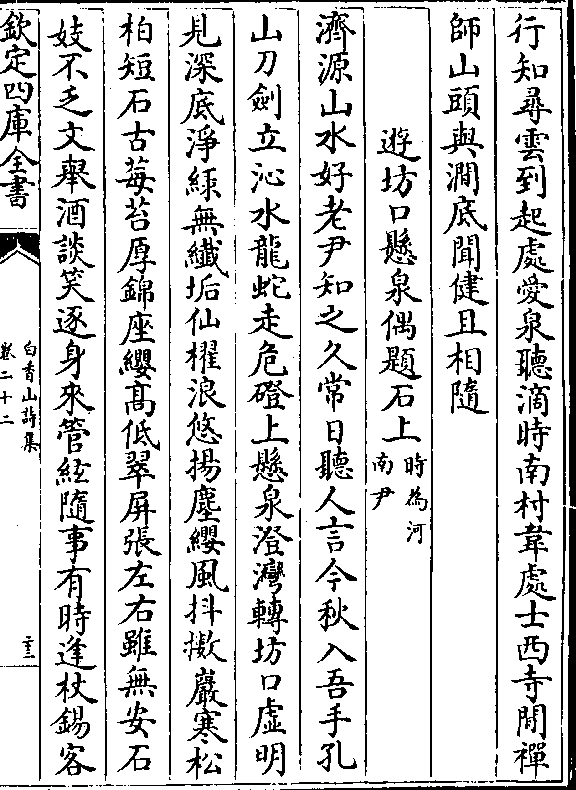 行知尋雲到起處愛泉聽滴時南村韋處士西寺閒禪
師山頭與澗底聞健且相隨
遊坊口懸泉偶題石上時為河南尹
濟源山水好老尹知之久常日聽人言今秋入吾手孔
山刀劍立沁水龍蛇走危磴上懸泉澄灣轉坊口虛明
見深底淨綠無纎垢仙櫂浪悠揚塵纓風抖擻巖寒松
柏短石古莓苔厚錦座纓高低翠屏張左右雖無安石
妓不乏文舉酒談笑逐身來管絃隨事有時逢杖錫客
欽定四庫全書
白香山詩集
卷二十二
二十三